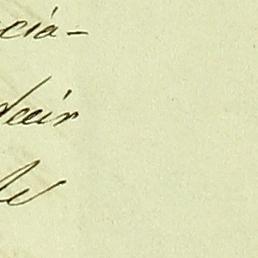 cia-
decir
de